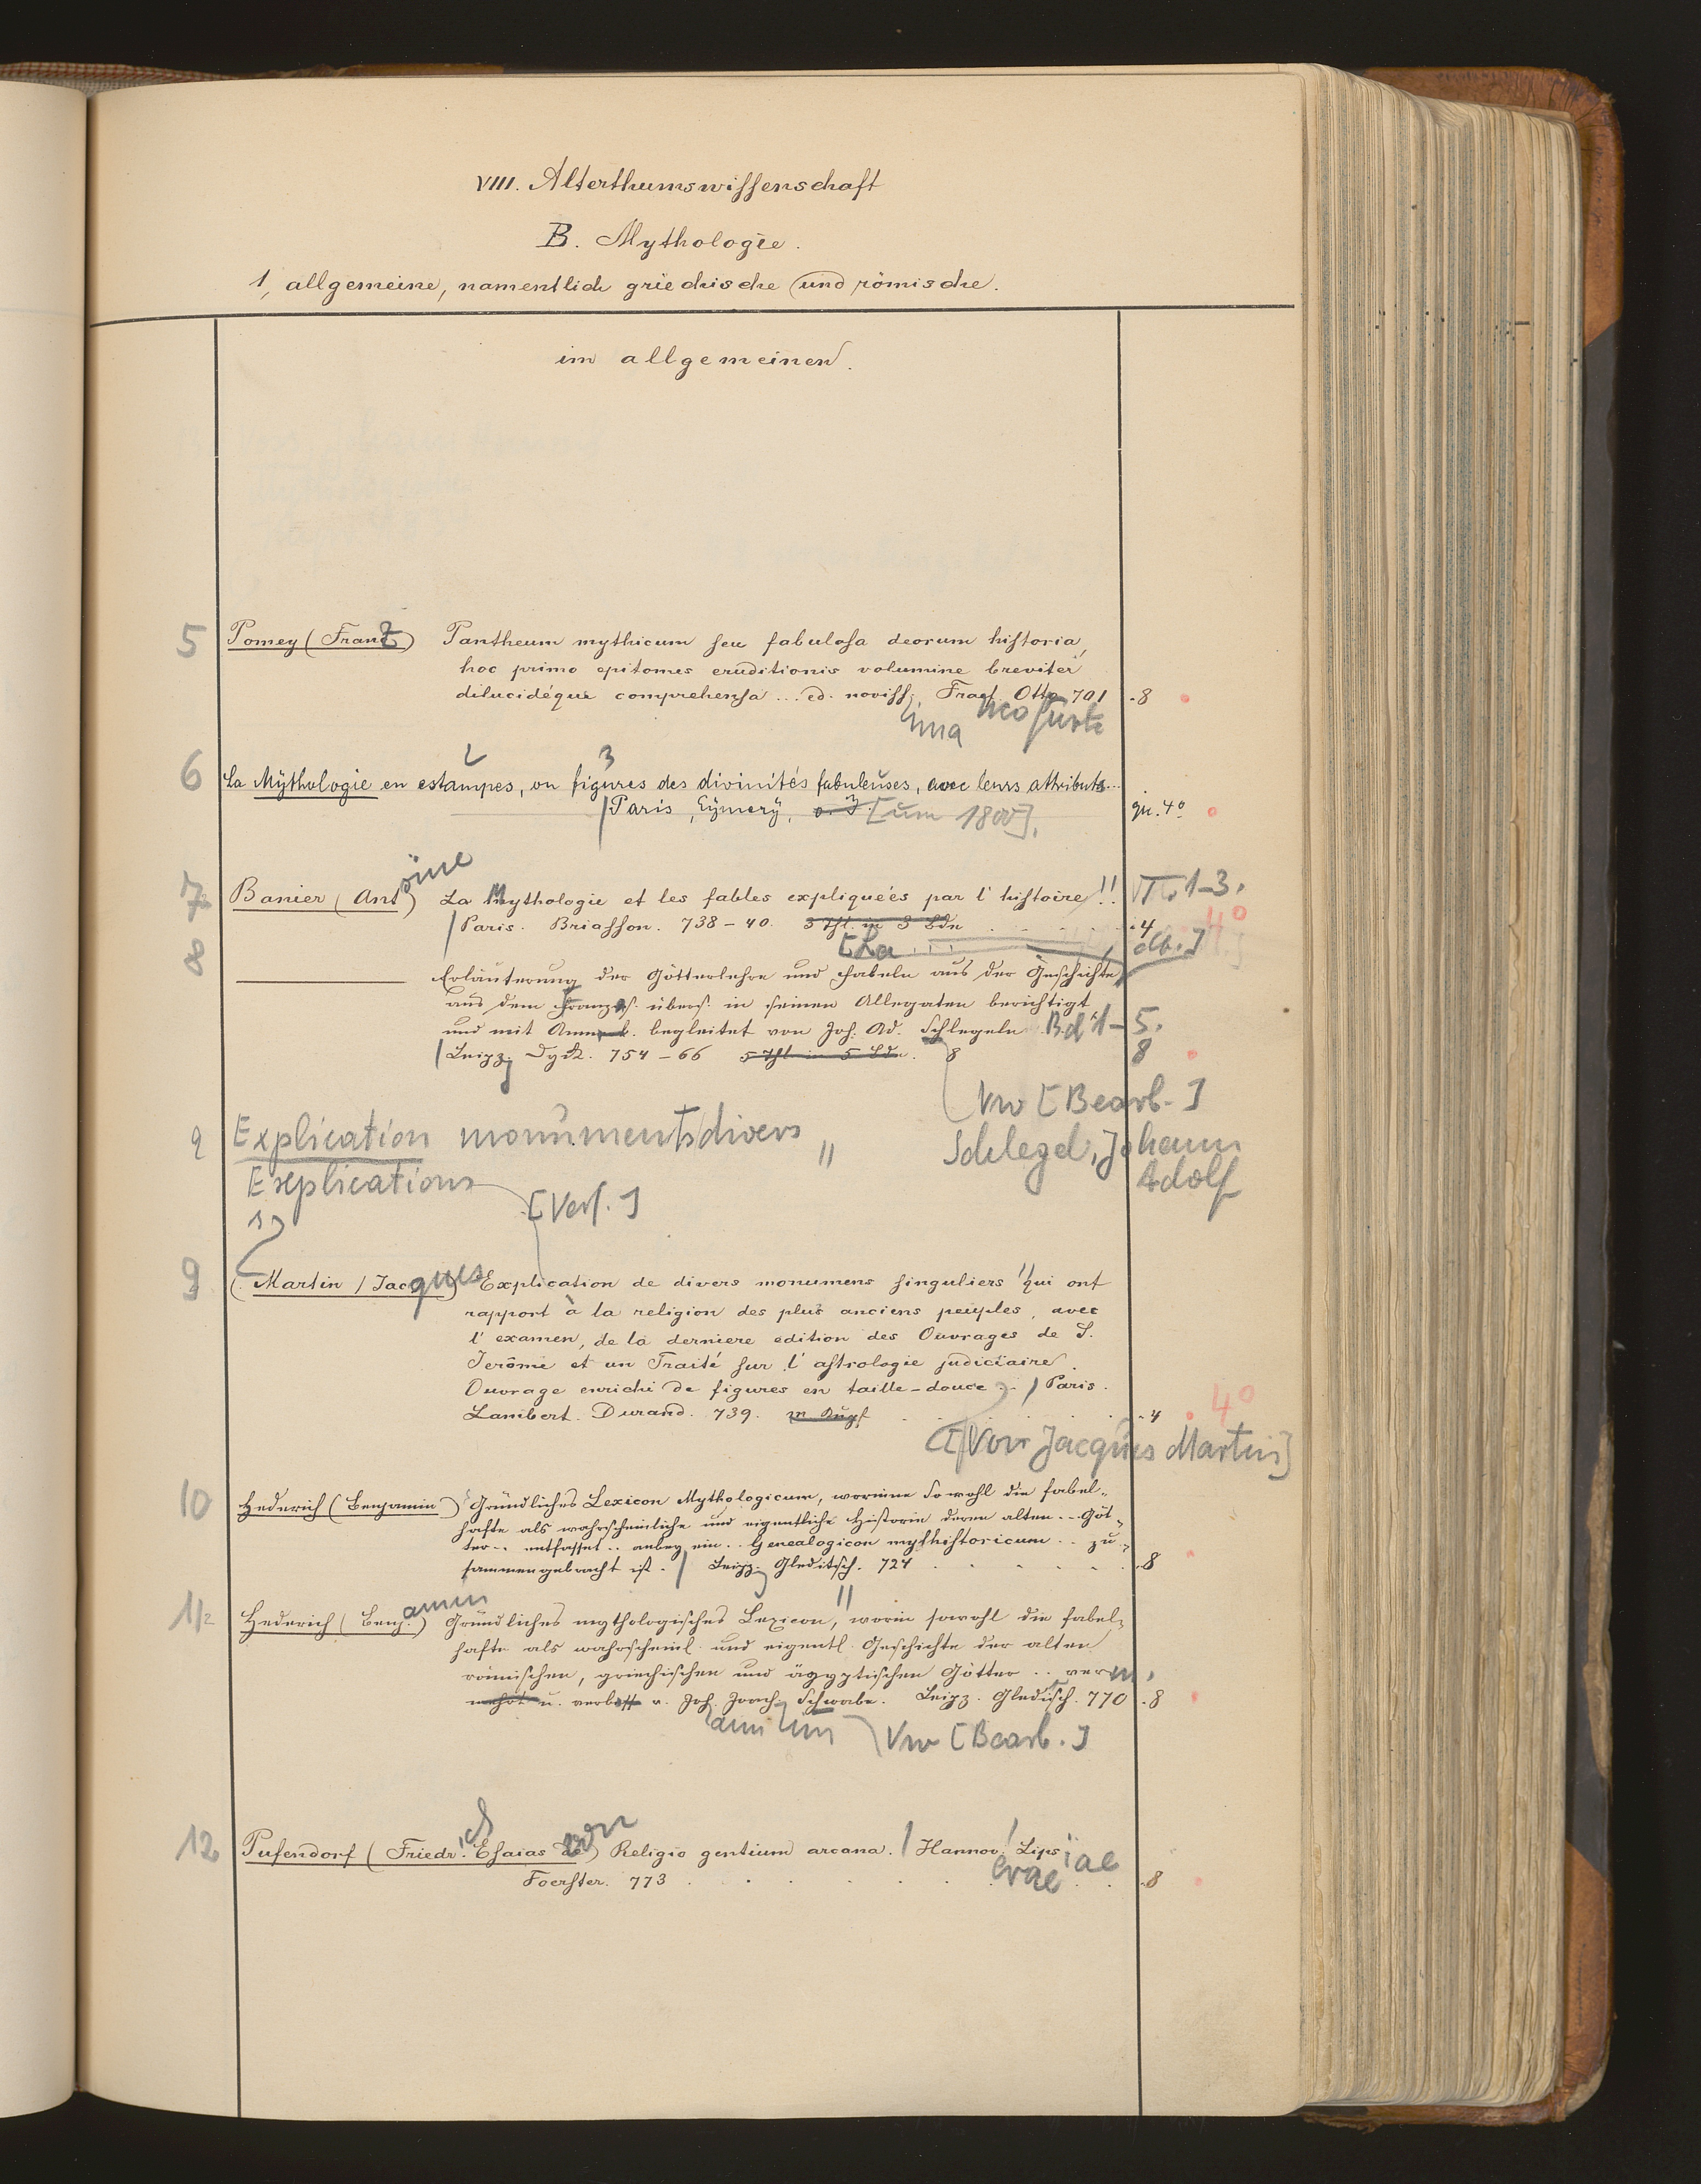 VIII. Alterthumswissenschaft
B. Mythologie.
1, allgemeine, namentlich griechische und römische.
im allgemeinen.
5 Pomey (Franz) Pantheum mythicum seu fabulosa deorum historia,
hoc primo epitomes eruditionis volumine breviter
dilucidéque comprehensa ... ed. noviss. Francf. Otto 701 .8
ima ncofurti
2 3
6 La Mythologie en estampes, ou figures des divinités fabuleuses, avec leurs attributs...
Paris, Eymery, o. J [um 1800]. qu. 4º
7 Banier (Antoine) La Mythologie et les fables expliqueés par l'histoire!! T. 1-3.
Paris. Briasson. 738-40. 3 Thl. in 3 Bdn .4 4º
8 [La ... dt.]
Erläuterung der Götterlehre und Fabeln aus der Geschichte
aus dem Französ. übers. in seinen Allegaten berichtigt
und mit Anmerk. begleitet von Joh. Ad. Schlegeln Bd 1-5.
Leipz. Dyck. 754-66 5 Thl in 5 Bdn. 8 8
Vw [Bearb.]
9 Explication monuments divers " Schlegel, Johann
Explications Adolf
[Verf.]
9 (Martin / Jacques) Explication de divers monumens singuliers " qui ont
rapport à la religion des plus anciens peuples, avec
l'examen, de la derniere edition des Ouvrages de S.
Jerôme et un Traité sur l'astrologie judiciaire.
Ouvrage enrichi de figures en taille-douce. / Paris.
Lambert. Durand. 739. m Kupf .4 4º
[Von Jacques Martin]
10 Hederich (Benjamin) Gründliches Lexicon Mythologicum, worinne sowohl die fabel-
hafte als wahrscheinliche und eigentliche Historie deren alten .. Göt-
ter .. entfasset .. anbey ein .. Genealogicon mythistoricum .. zu-
sammengebracht ist. / Leipz. Gleditsch. 724 .8
11/2 Hederich (Benjamin) Gründliches mythologisches Lexicon, " worin sowohl die fabel-
hafte als wahrscheinl. und eigentl. Geschichte der alten
römischen, griechischen und ägyptischen Götter .. verm.
mehrt u. verbess v. Joh. Joach. Schwabe. Leipz. Gleditsch. 770 .8
Vw [Bearb.]
12 Pufendorf (Friedrich Esaias von) Religio gentium arcana. / Hannov. Lipsiae
Foerster. 773 erae .8